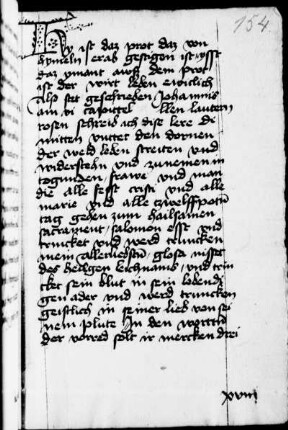 154
Hy ist daz prot daz von
hymeln herab gestigen ist ysst
daz ymant auß dem prot
ist der wirt leben ewiclich
Also stet geschrieben Johannis
am vi capittel allen lautern
rosen schreib ich dise lere di
mitten vnder den dornen
der welt leben streiten vnd
widerstehn vnd zunemen in
togunden frawe vnd man
die alle fest cristi vnd alle
marie vnd alle zwelffpoten
tag gehen zum hailsamen
sacrament salomon esst vnd
trincket vnd werd truncken
mein allerliebsten glosa nisset
des heilgen leichnams vnd trin
cket sein blut in sein lebendi
gen ader vnd werd truncken
geistlich in seiner lieb von sei
nem plute In den worten
der vorred solt ir mercken drei
xviij